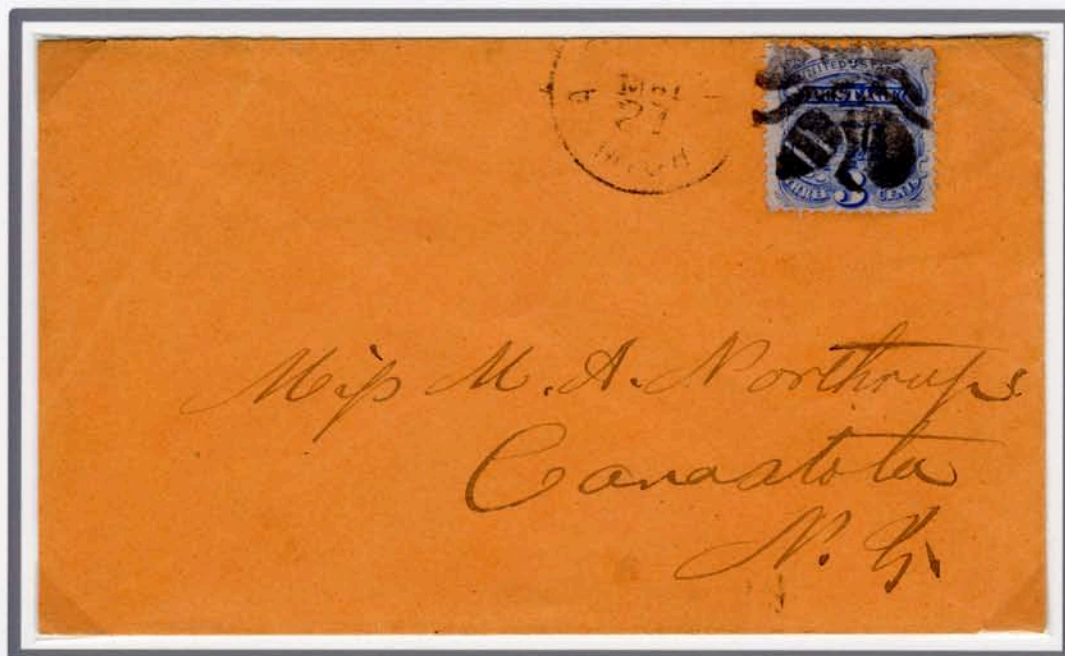 MICH
UNITED STATES
POSTAGE
THREE 3 CENTS
Miss M. A. Northrup
Canastota
N. Y.